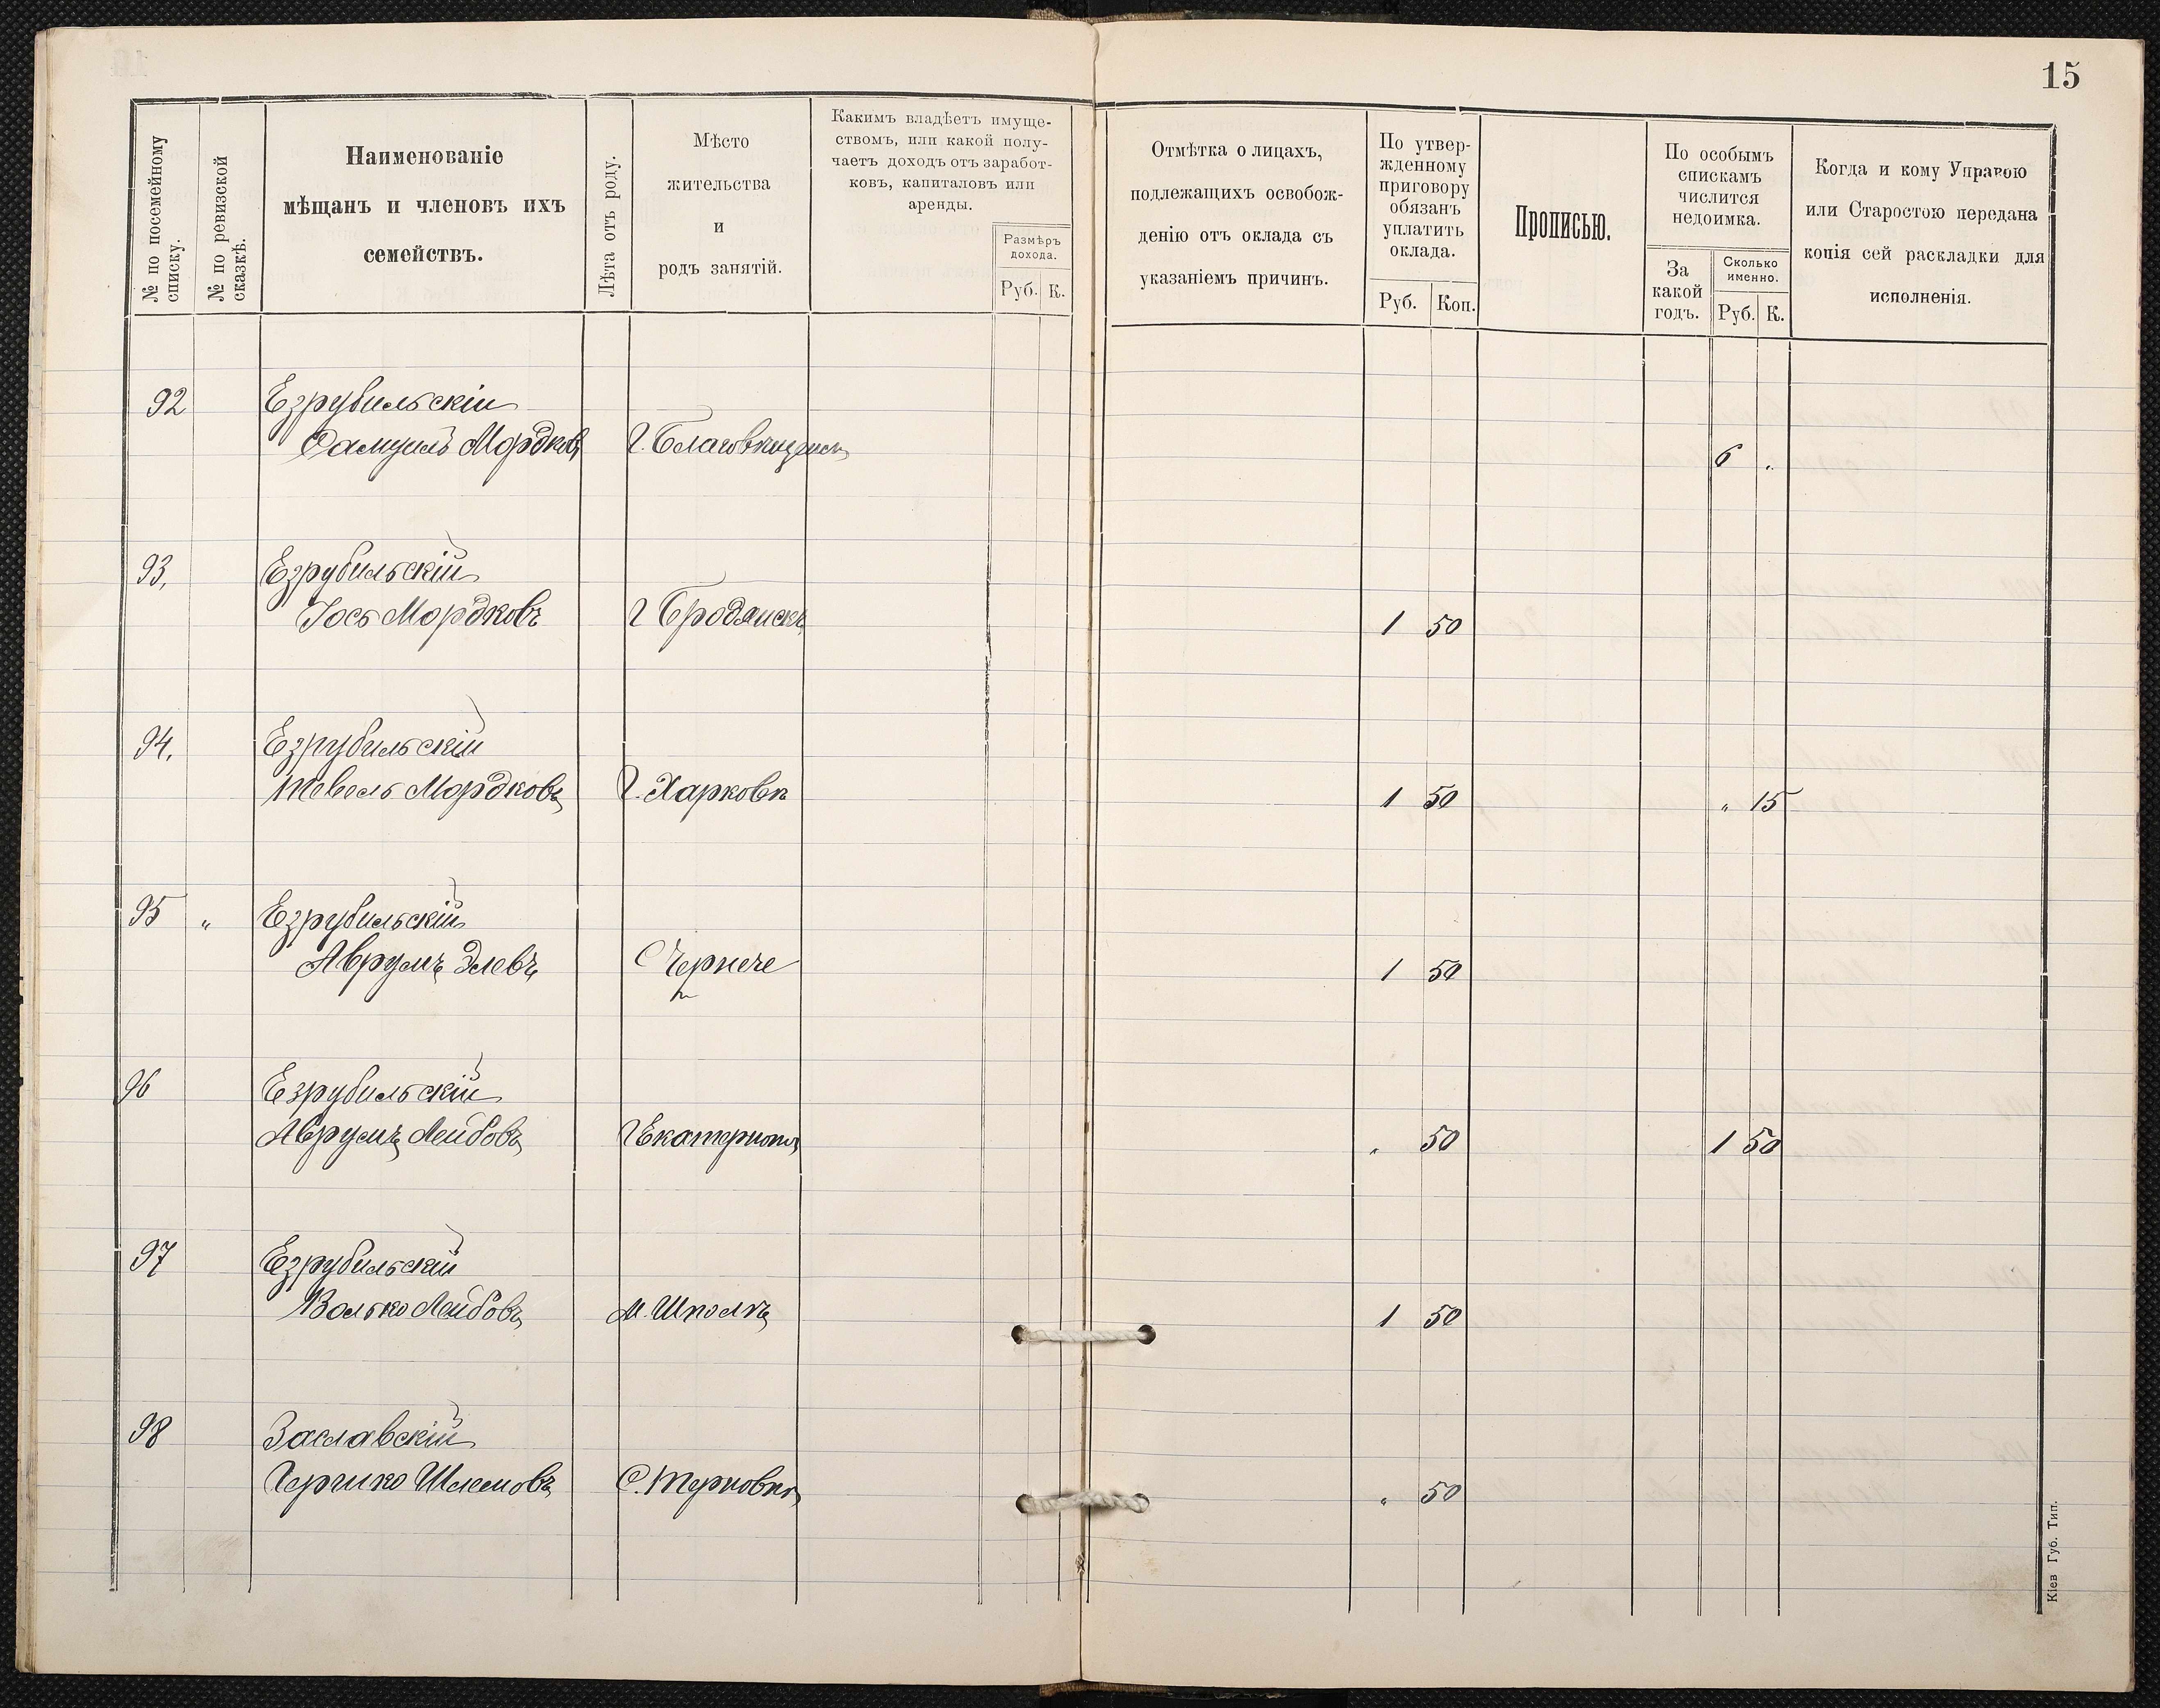 15
№ по посемейному списку.
№ по ревизской сказкѣ.
Наименованіе
мѣщанъ и членовъ ихъ
семействъ.
Лѣта отъ роду.
Мѣсто
жительства
и
родъ занятій.
Какимъ владѣетъ имуще-
ствомъ, или какой полу-
чаетъ доходъ отъ заработ-
ковъ, капиталовъ или
аренды.
Размѣръ
дохода.
Руб. К.
Отмѣтка о лицахъ,
подлежащихъ освобож-
денію отъ оклада съ
указаніемъ причинъ.
По утвер-
жденному
приговору
обязанъ
уплатить
оклада.
Руб. Коп.
Прописью.
По особымъ
спискамъ
числится
недоимка.
За
какой
годъ.
Сколько
именно.
Руб. К.
Когда и кому Управою
или Старостою передана
копія сей раскладки для
исполненія.
92 Езрубильскій
Самуилъ Мордковъ Г. 6 „
93, Езрубильскій
Іось Мордковъ Г 1 50
94, Езрубильскій
Тевель Мордковъ Г. Харковъ 1 50 „ 15
95 „ Езрубильскій
Аврумъ Элевъ С Черпече 1 50
96 Езрубильскій
Аврумъ Лейбовъ Г „ 50 1 50
97 Езрубильскій
Волько Лейбовъ М. Шполѣ 1 50
98 Заславскій
Гершко Шлемовъ С. „ 50
Кіев Губ. Тип.